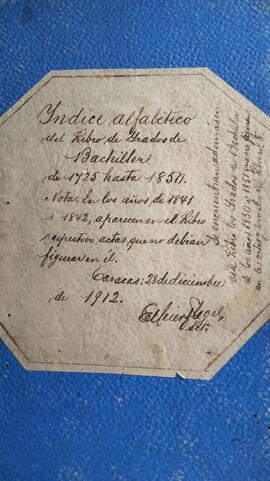 Indice alfabético
del Libro de Grados de
Bachiller
de 1725 hasta 1850.
Nota: En los años de 1841
i 1842, aparecen en el Libro
respectivo, actas que no debian
figurar en él.
Caracas: 28 de diciembre
de 1912.
Se encuentran ademas en
este Libro los Grados de Bachiller
de los años 1850 y 1851 que no figuran
en